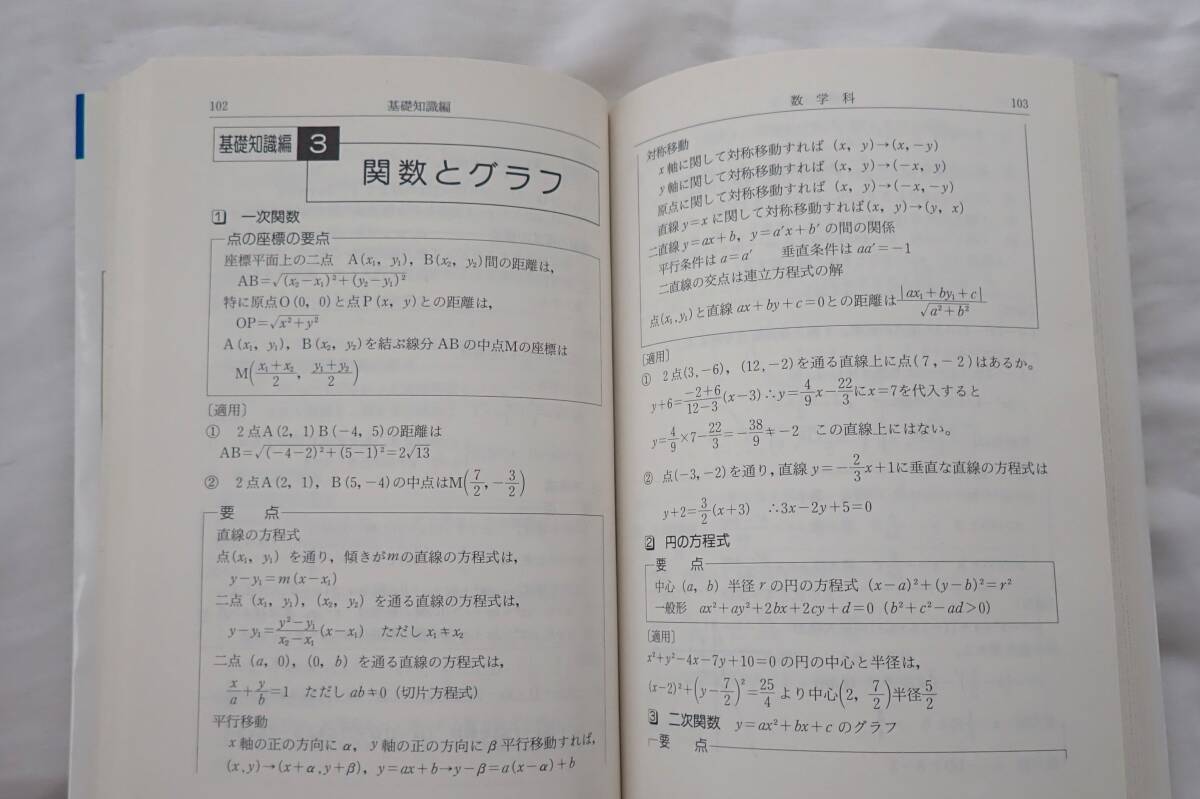 102 基礎知識編
基礎知識編 3
関数とグラフ
1 一次関数
点の座標の要点
座標平面上の二点 A(x₁, y₁), B(x₂, y₂)間の距離は,
AB=√(x₂−x₁)²+(y₂−y₁)²
特に原点O(0, 0)と点P(x, y)との距離は,
OP=√x²+y²
A(x₁, y₁), B(x₂, y₂)を結ぶ線分ABの中点Mの座標は
M((x₁+x₂)/2, (y₁+y₂)/2)
〔適用〕
① 2点A(2, 1)B(−4, 5)の距離は
AB=√(−4−2)²+(5−1)²=2√13
② 2点A(2, 1), B(5,−4)の中点はM(7/2, −3/2)
要 点
直線の方程式
点(x₁, y₁)を通り,傾きがmの直線の方程式は,
y−y₁=m(x−x₁)
二点(x₁, y₁),(x₂, y₂)を通る直線の方程式は,
y−y₁=(y²−y₁)/(x₂−x₁)(x−x₁) ただしx₁≠x₂
二点(a, 0),(0, b)を通る直線の方程式は,
x/a+y/b=1 ただしab≠0(切片方程式)
平行移動
x軸の正の方向にα, y軸の正の方向にβ平行移動すれば,
(x,y)→(x+α,y+β), y=ax+b→y−β=a(x−α)+b
数学科 103
対称移動
x軸に関して対称移動すれば(x, y)→(x,−y)
y軸に関して対称移動すれば(x, y)→(−x, y)
原点に関して対称移動すれば(x, y)→(−x,−y)
直線y=xに関して対称移動すれば(x, y)→(y, x)
二直線y=ax+b, y=a′x+b′の間の関係
平行条件はa=a′ 垂直条件はaa′=−1
二直線の交点は連立方程式の解
点(x₁,y₁)と直線ax+by+c=0との距離は|ax₁+by₁+c|/√a²+b²
〔適用〕
① 2点(3,−6),(12,−2)を通る直線上に点(7,−2)はあるか。
y+6=(−2+6)/(12−3)(x−3)∴y=4/9x−22/3にx=7を代入すると
y=4/9×7−22/3=−38/9≠−2 この直線上にはない。
② 点(−3,−2)を通り,直線y=−2/3x+1に垂直な直線の方程式は
y+2=3/2(x+3) ∴3x−2y+5=0
2 円の方程式
要 点
中心(a, b)半径rの円の方程式 (x−a)²+(y−b)²=r²
一般形 ax²+ay²+2bx+2cy+d=0 (b²+c²−ad>0)
〔適用〕
x²+y²−4x−7y+10=0の円の中心と半径は,
(x−2)²+(y−7/2)²=25/4より中心(2, 7/2)半径5/2
3 二次関数 y=ax²+bx+cのグラフ
要 点